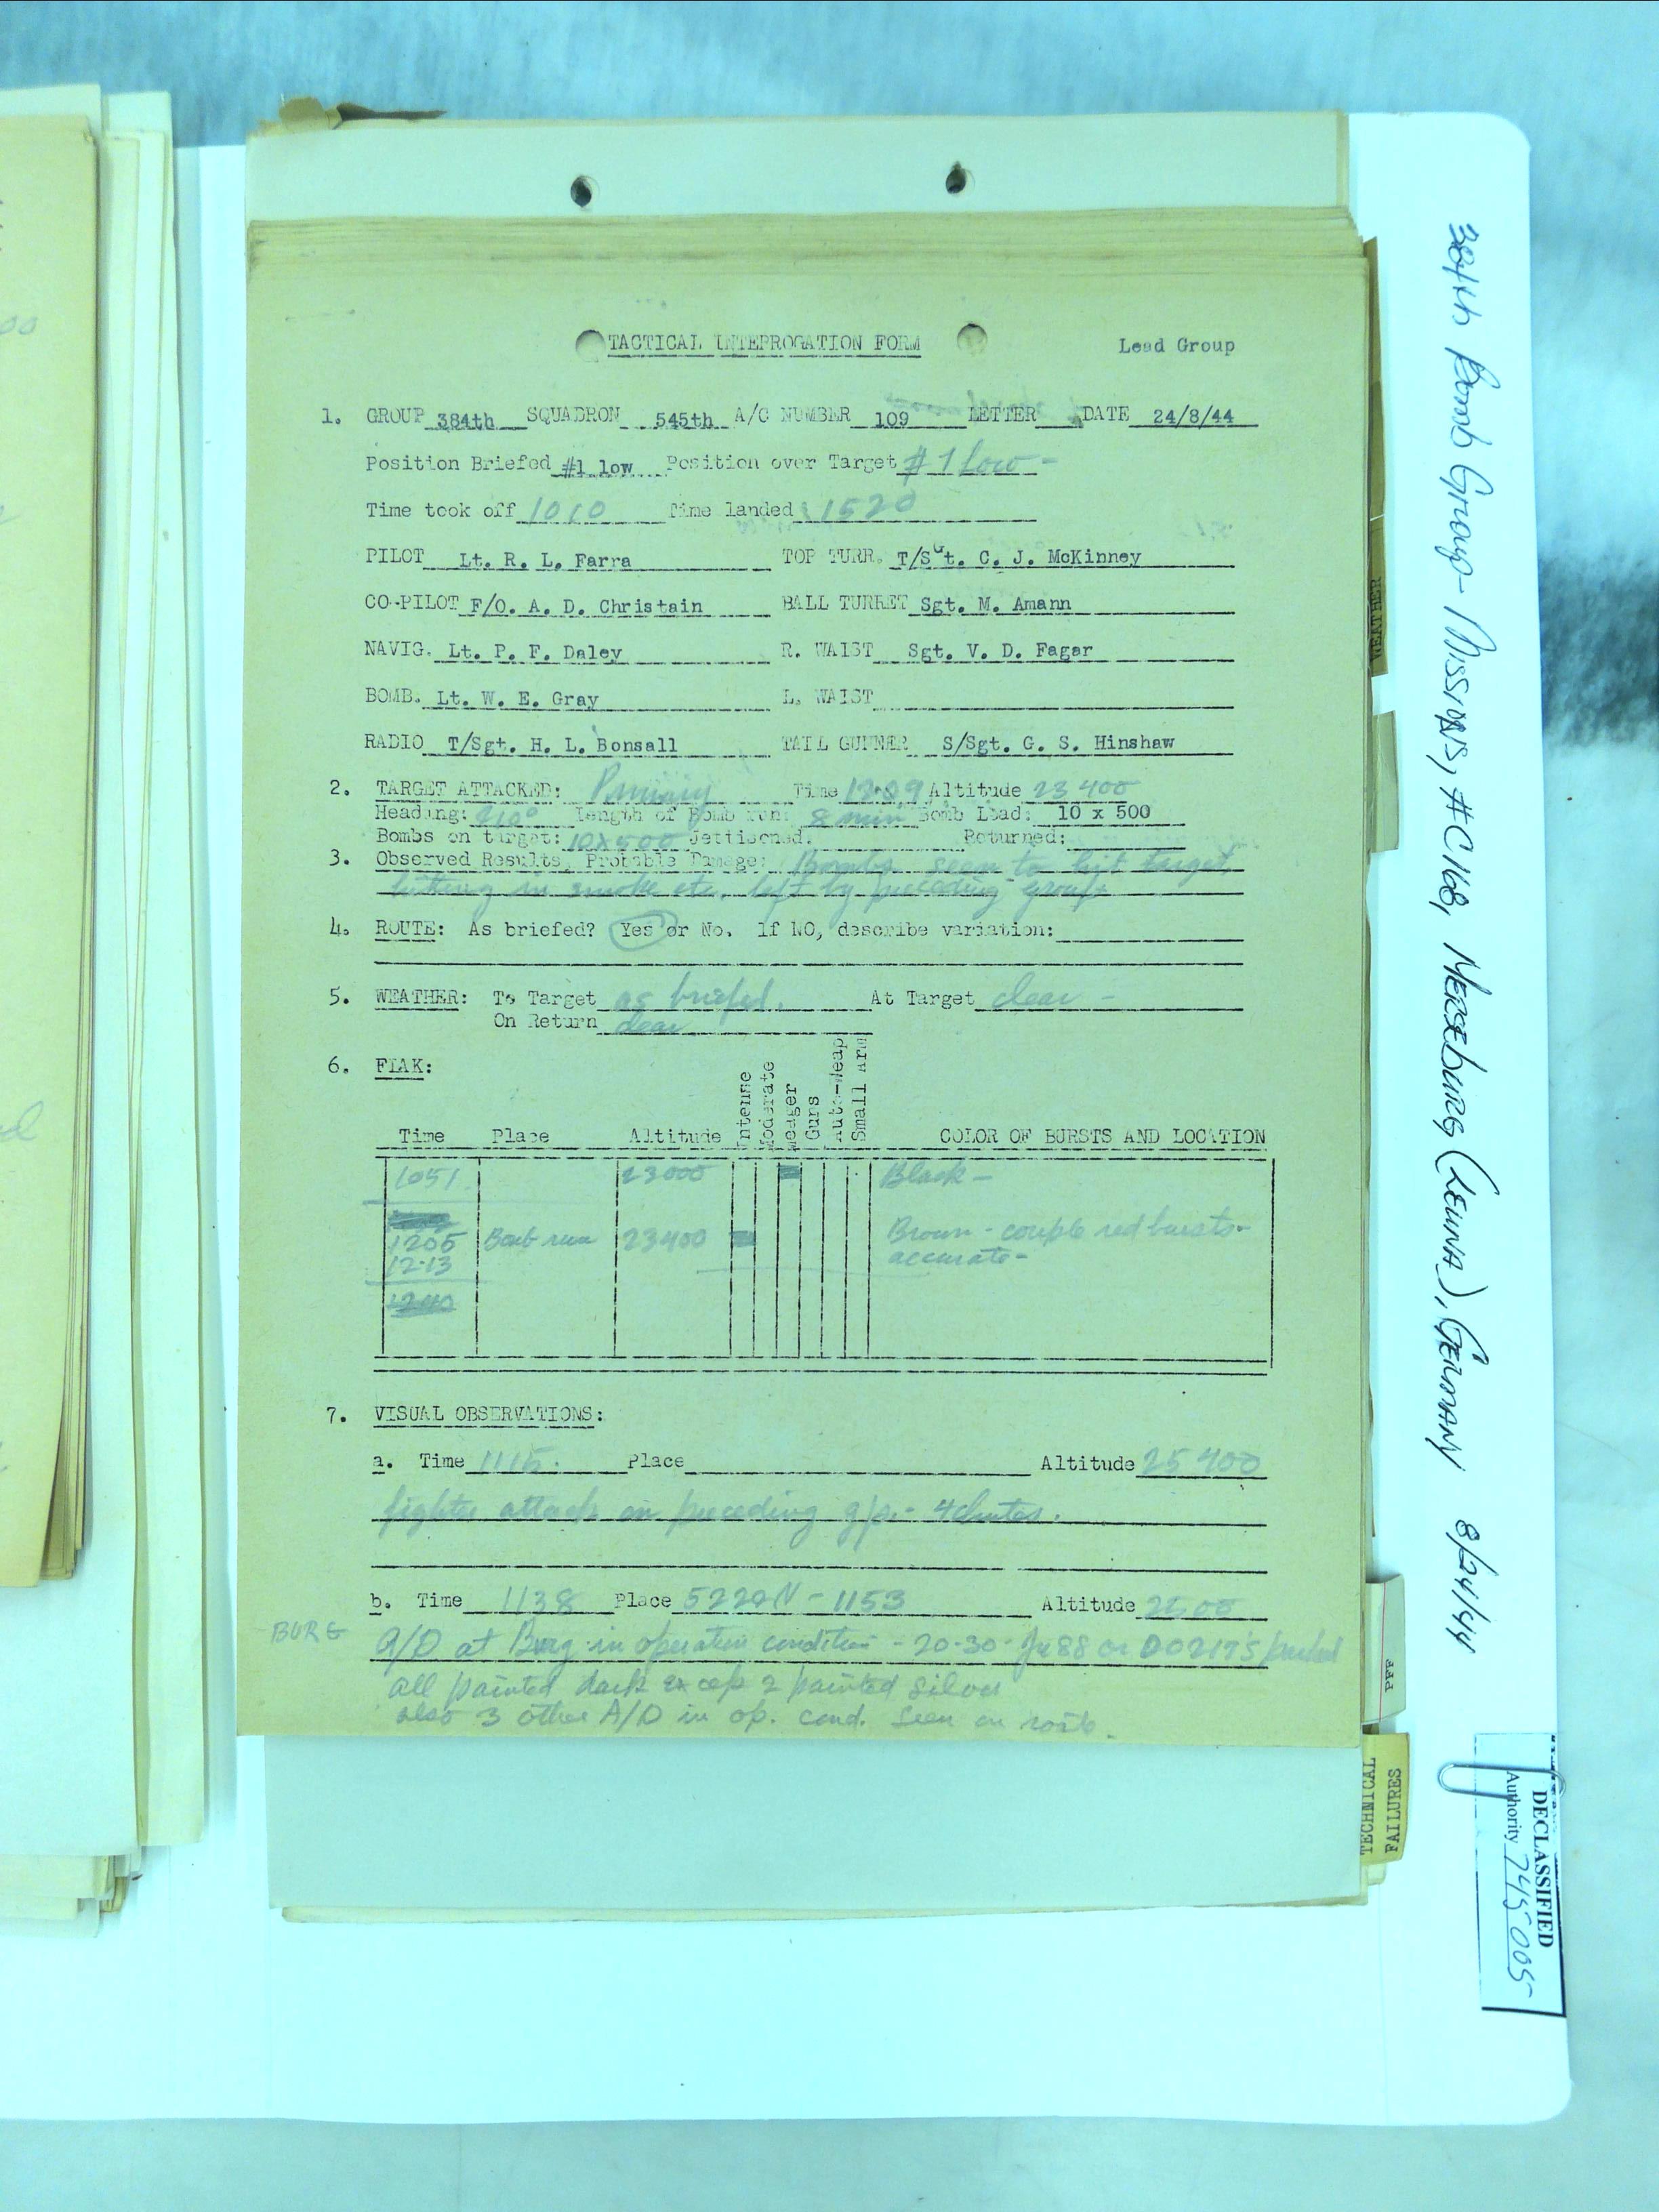 TACTICAL INTERROGATION FORM Lead Group
1. GROUP 384th SQUADRON 545th A/C NUMBER 109 LETTER DATE 24/8/44
Position Briefed #1 low Position over Target #1 Low -
Time took off 1010 Time landed 1520
PILOT Lt. R. L. Farra TOP TURR. T/Sgt. C. J. McKinney
CO-PILOT F/O. A. D. Christain BALL TURRET Sgt. M. Amann
NAVIG. Lt. P. F. Daley R. WAIST Sgt. V. D. Fagar
BOMB. Lt. W. E. Gray L. WAIST
RADIO T/Sgt. H. L. Bonsall TAIL GUNNER S/Sgt. G. S. Hinshaw
2. TARGET ATTACKED: Primary Time Altitude 23400
Heading: 210° Length of Bomb run: 8 min Bomb Load: 10 x 500
Bombs on target: 10x500 Jettisoned. Returned:
3. Observed Results, Probable Damage: Bombs seen to hit target,
hitting in smoke etc. left by preceding groups
4. ROUTE: As briefed? Yes or No. If NO, describe variation:
5. WEATHER: To Target as briefed. At Target clear -
On Return clear
6. FLAK:
Time Place Altitude Intense Moderate Meager Guns Auto-Weap Small Arm COLOR OF BURSTS AND LOCATION
1051 23000 Black -
1205 Bomb run 23400 Brown - couple red bursts -
12-13 accurate -
1240
7. VISUAL OBSERVATIONS:
a. Time 1115. Place Altitude 25400
fighter attack on preceding gp. - 4 chutes.
b. Time 1138 Place 5220N - 1153 Altitude
BURG A/D at Burg in operation condition - 20-30 - Ju88 or DO217's parked
all painted dark excep 2 painted silver
also 3 other A/D in op. cond. seen on route.
384th Bomb Group - Missions, #C168, Merseburg (Leuna), Germany 8/24/44
WEATHER
PFF
TECHNICAL
FAILURES
DECLASSIFIED
Authority 745005